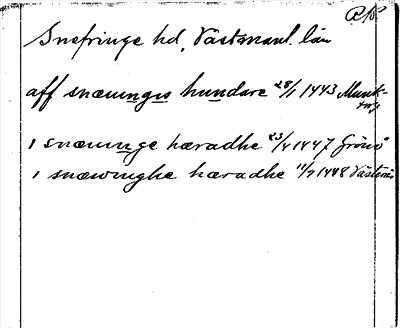 R.K.
Snefringe hd, Västmanl. län
aff snæuungis hundare 28/1 1443 Munk-
torp
i snæuunge hæradhe 23/4 1447 Grönö
i snæwinghe hæradhe 11/7 1448 Västerås